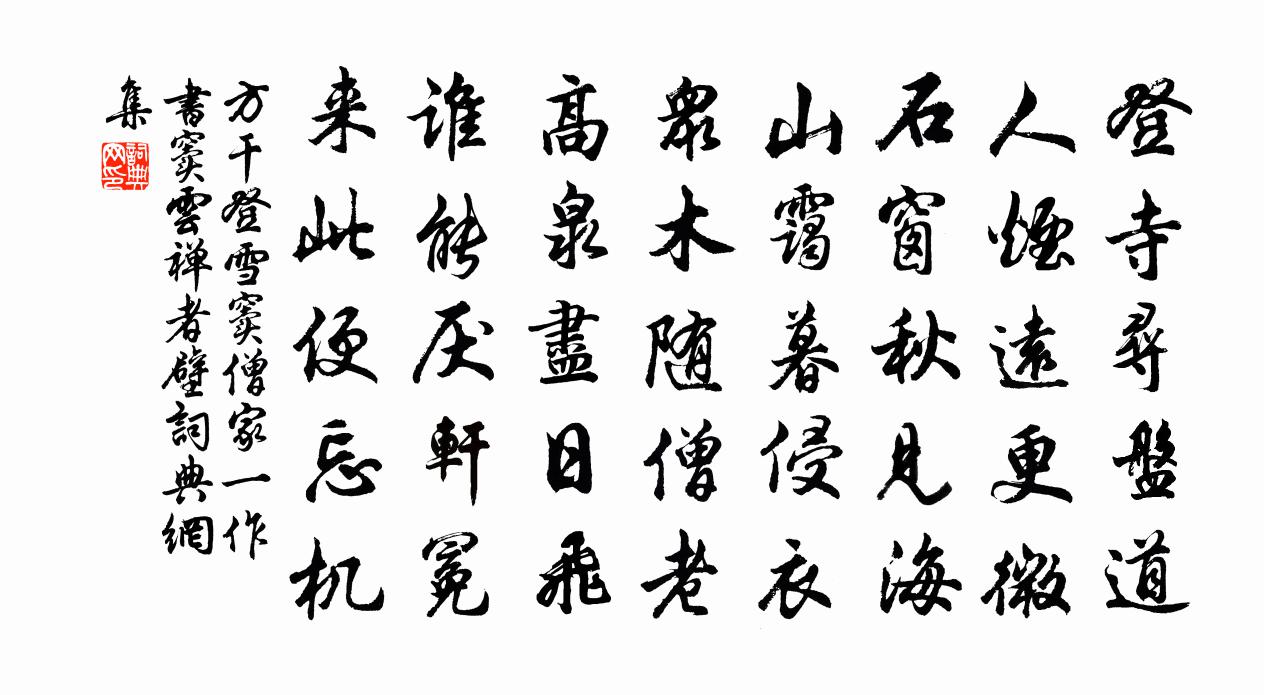 登寺尋盤道
人煙遠更微
石窗秋見海
山霭暮侵衣
衆木随僧老
高泉盡日飛
谁能厌軒冕
来此便忘机
方干登雪窦僧家一作
書窦雲禅者壁詞典網
集
詞典網印